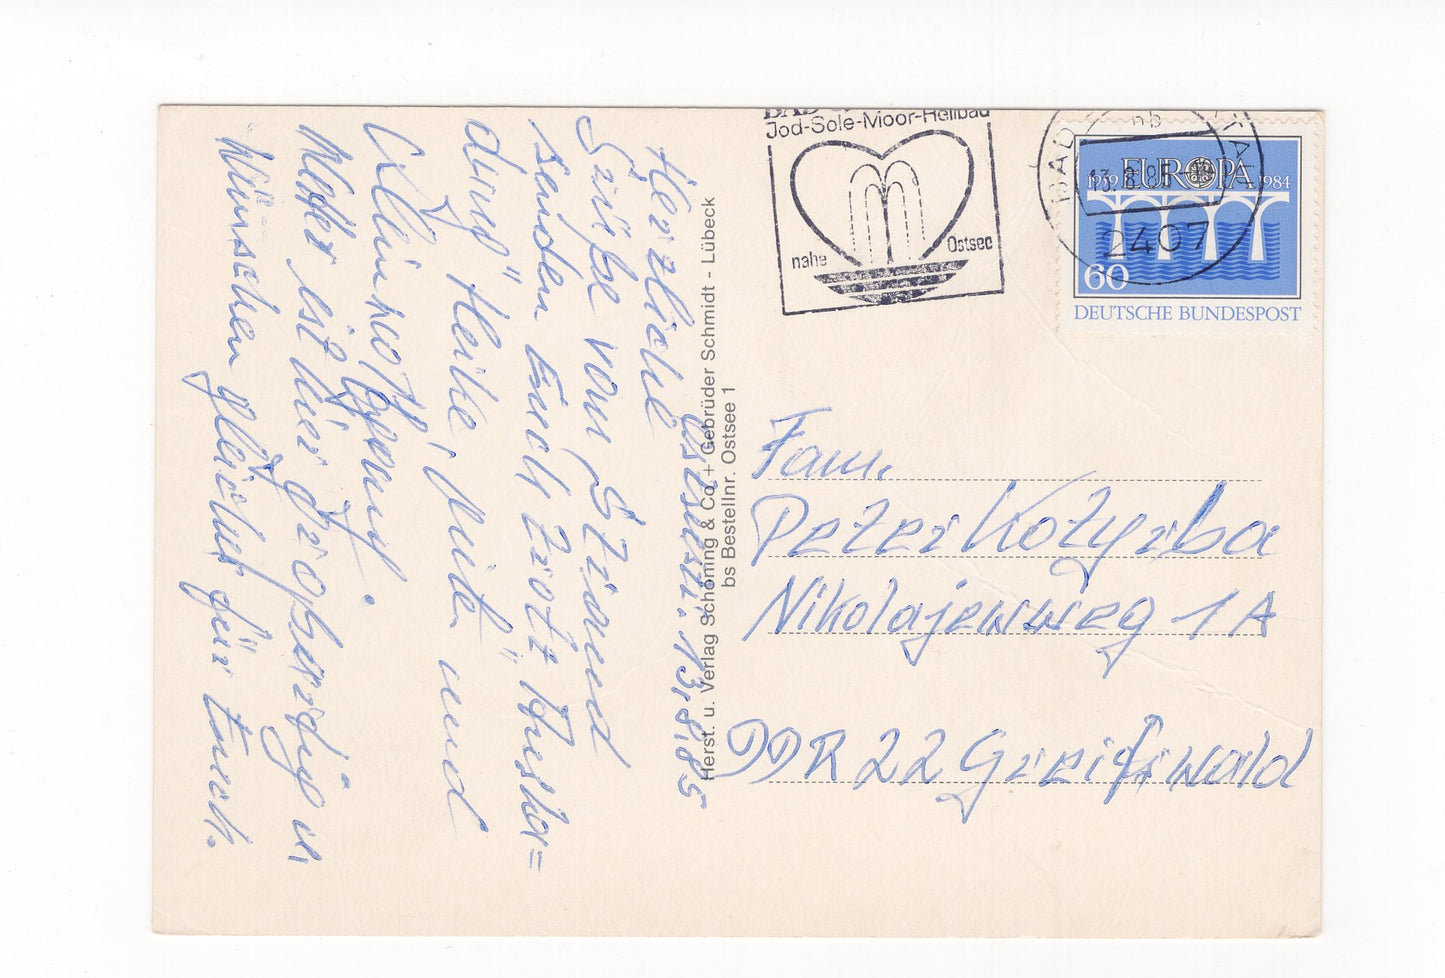 Ostsee, 13.8.85
Herzliche
Grüße vom Strand
senden Euch trotz
durg" Heike, and
Kleinkotzgony.
Wetter ist hier großartig u.
wünschen gleiches für Euch.
Herst. u. Verlag Schöning & Co. + Gebrüder Schmidt - Lübeck
bs Bestellnr. Ostsee 1
BAD
Jod-Sole-Moor-Heilbad
nahe
Ostsee
BAD
nb
13.8.85
2407
EUROPA
1959
1984
60
DEUTSCHE BUNDESPOST
Fam.
Peter Kotyrba
Nikolajewweg 1A
DDR 22 Greifswald